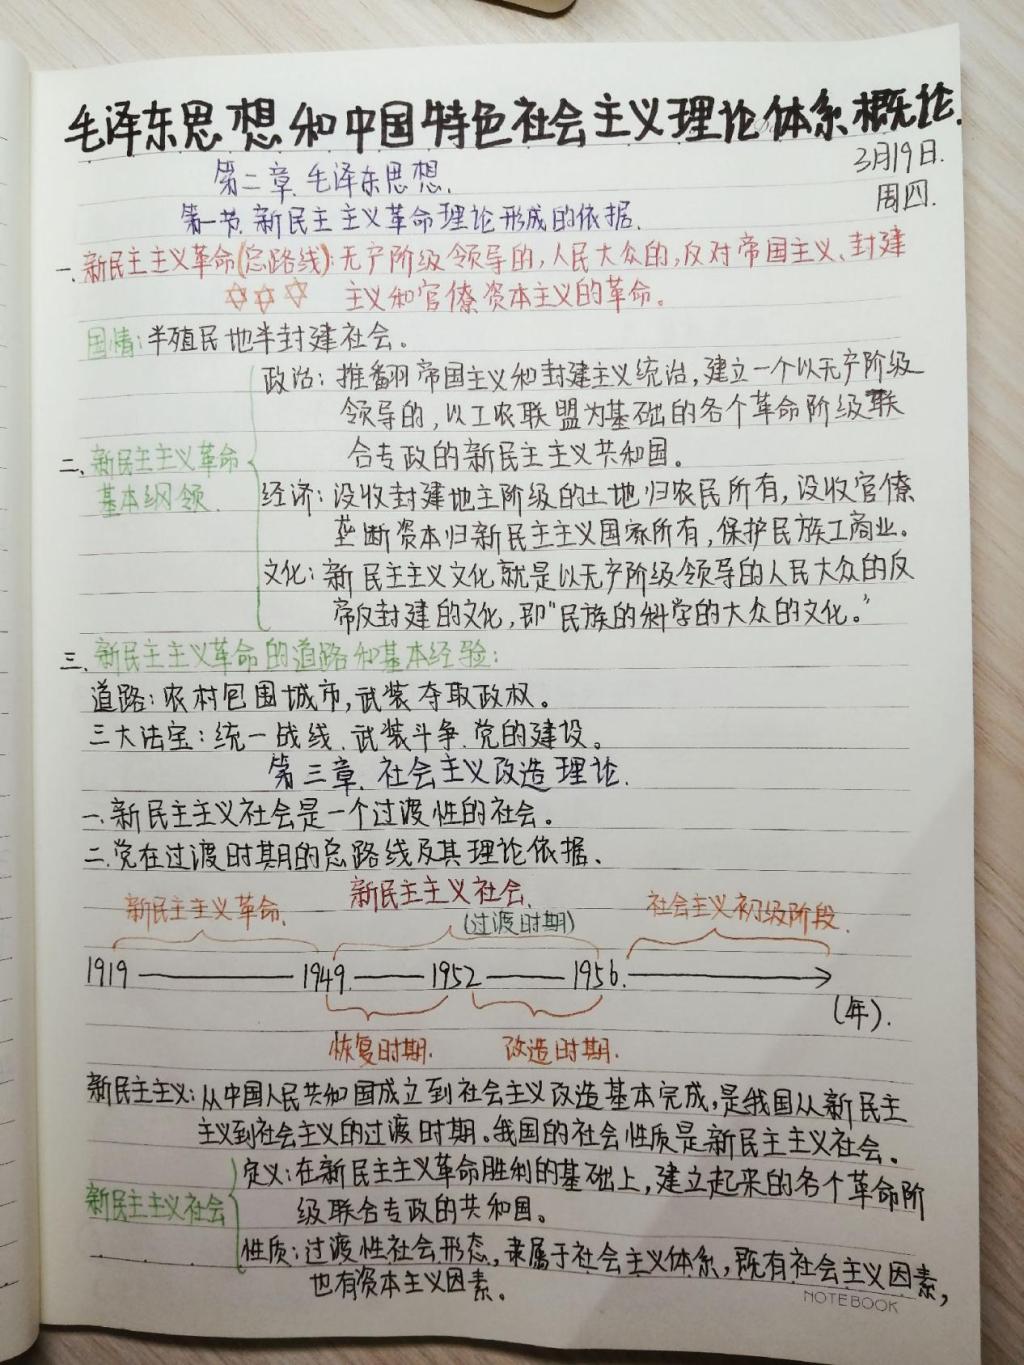 毛泽东思想和中国特色社会主义理论体系概论.
3月19日.
第二章.毛泽东思想.
周四.
第一节.新民主主义革命理论形成的依据.
一、新民主主义革命(总路线):无产阶级领导的,人民大众的,反对帝国主义、封建
主义和官僚资本主义的革命。
国情:半殖民地半封建社会。
政治:推翻帝国主义和封建主义统治,建立一个以无产阶级
领导的,以工农联盟为基础的各个革命阶级联
合专政的新民主主义共和国。
二、新民主主义革命
基本纲领.
经济:没收封建地主阶级的土地归农民所有,没收官僚
垄断资本归新民主主义国家所有,保护民族工商业。
文化:新民主主义文化就是以无产阶级领导的人民大众的反
帝反封建的文化,即“民族的科学的大众的文化。”
三、新民主主义革命的道路和基本经验:
道路:农村包围城市,武装夺取政权。
三大法宝:统一战线、武装斗争、党的建设。
第三章.社会主义改造理论.
一、新民主主义社会是一个过渡性的社会。
二.党在过渡时期的总路线及其理论依据、
新民主主义革命. 新民主主义社会. 社会主义初级阶段.
(过渡时期)
1919 1949. 1952 1956.
(年).
恢复时期. 改造时期.
新民主主义:从中国人民共和国成立到社会主义改造基本完成,是我国从新民主
主义到社会主义的过渡时期。我国的社会性质是新民主主义社会。
定义:在新民主主义革命胜利的基础上,建立起来的各个革命阶
级联合专政的共和国。
新民主主义社会
性质:过渡性社会形态,隶属于社会主义体系,既有社会主义因素,
也有资本主义因素.
NOTEBOOK